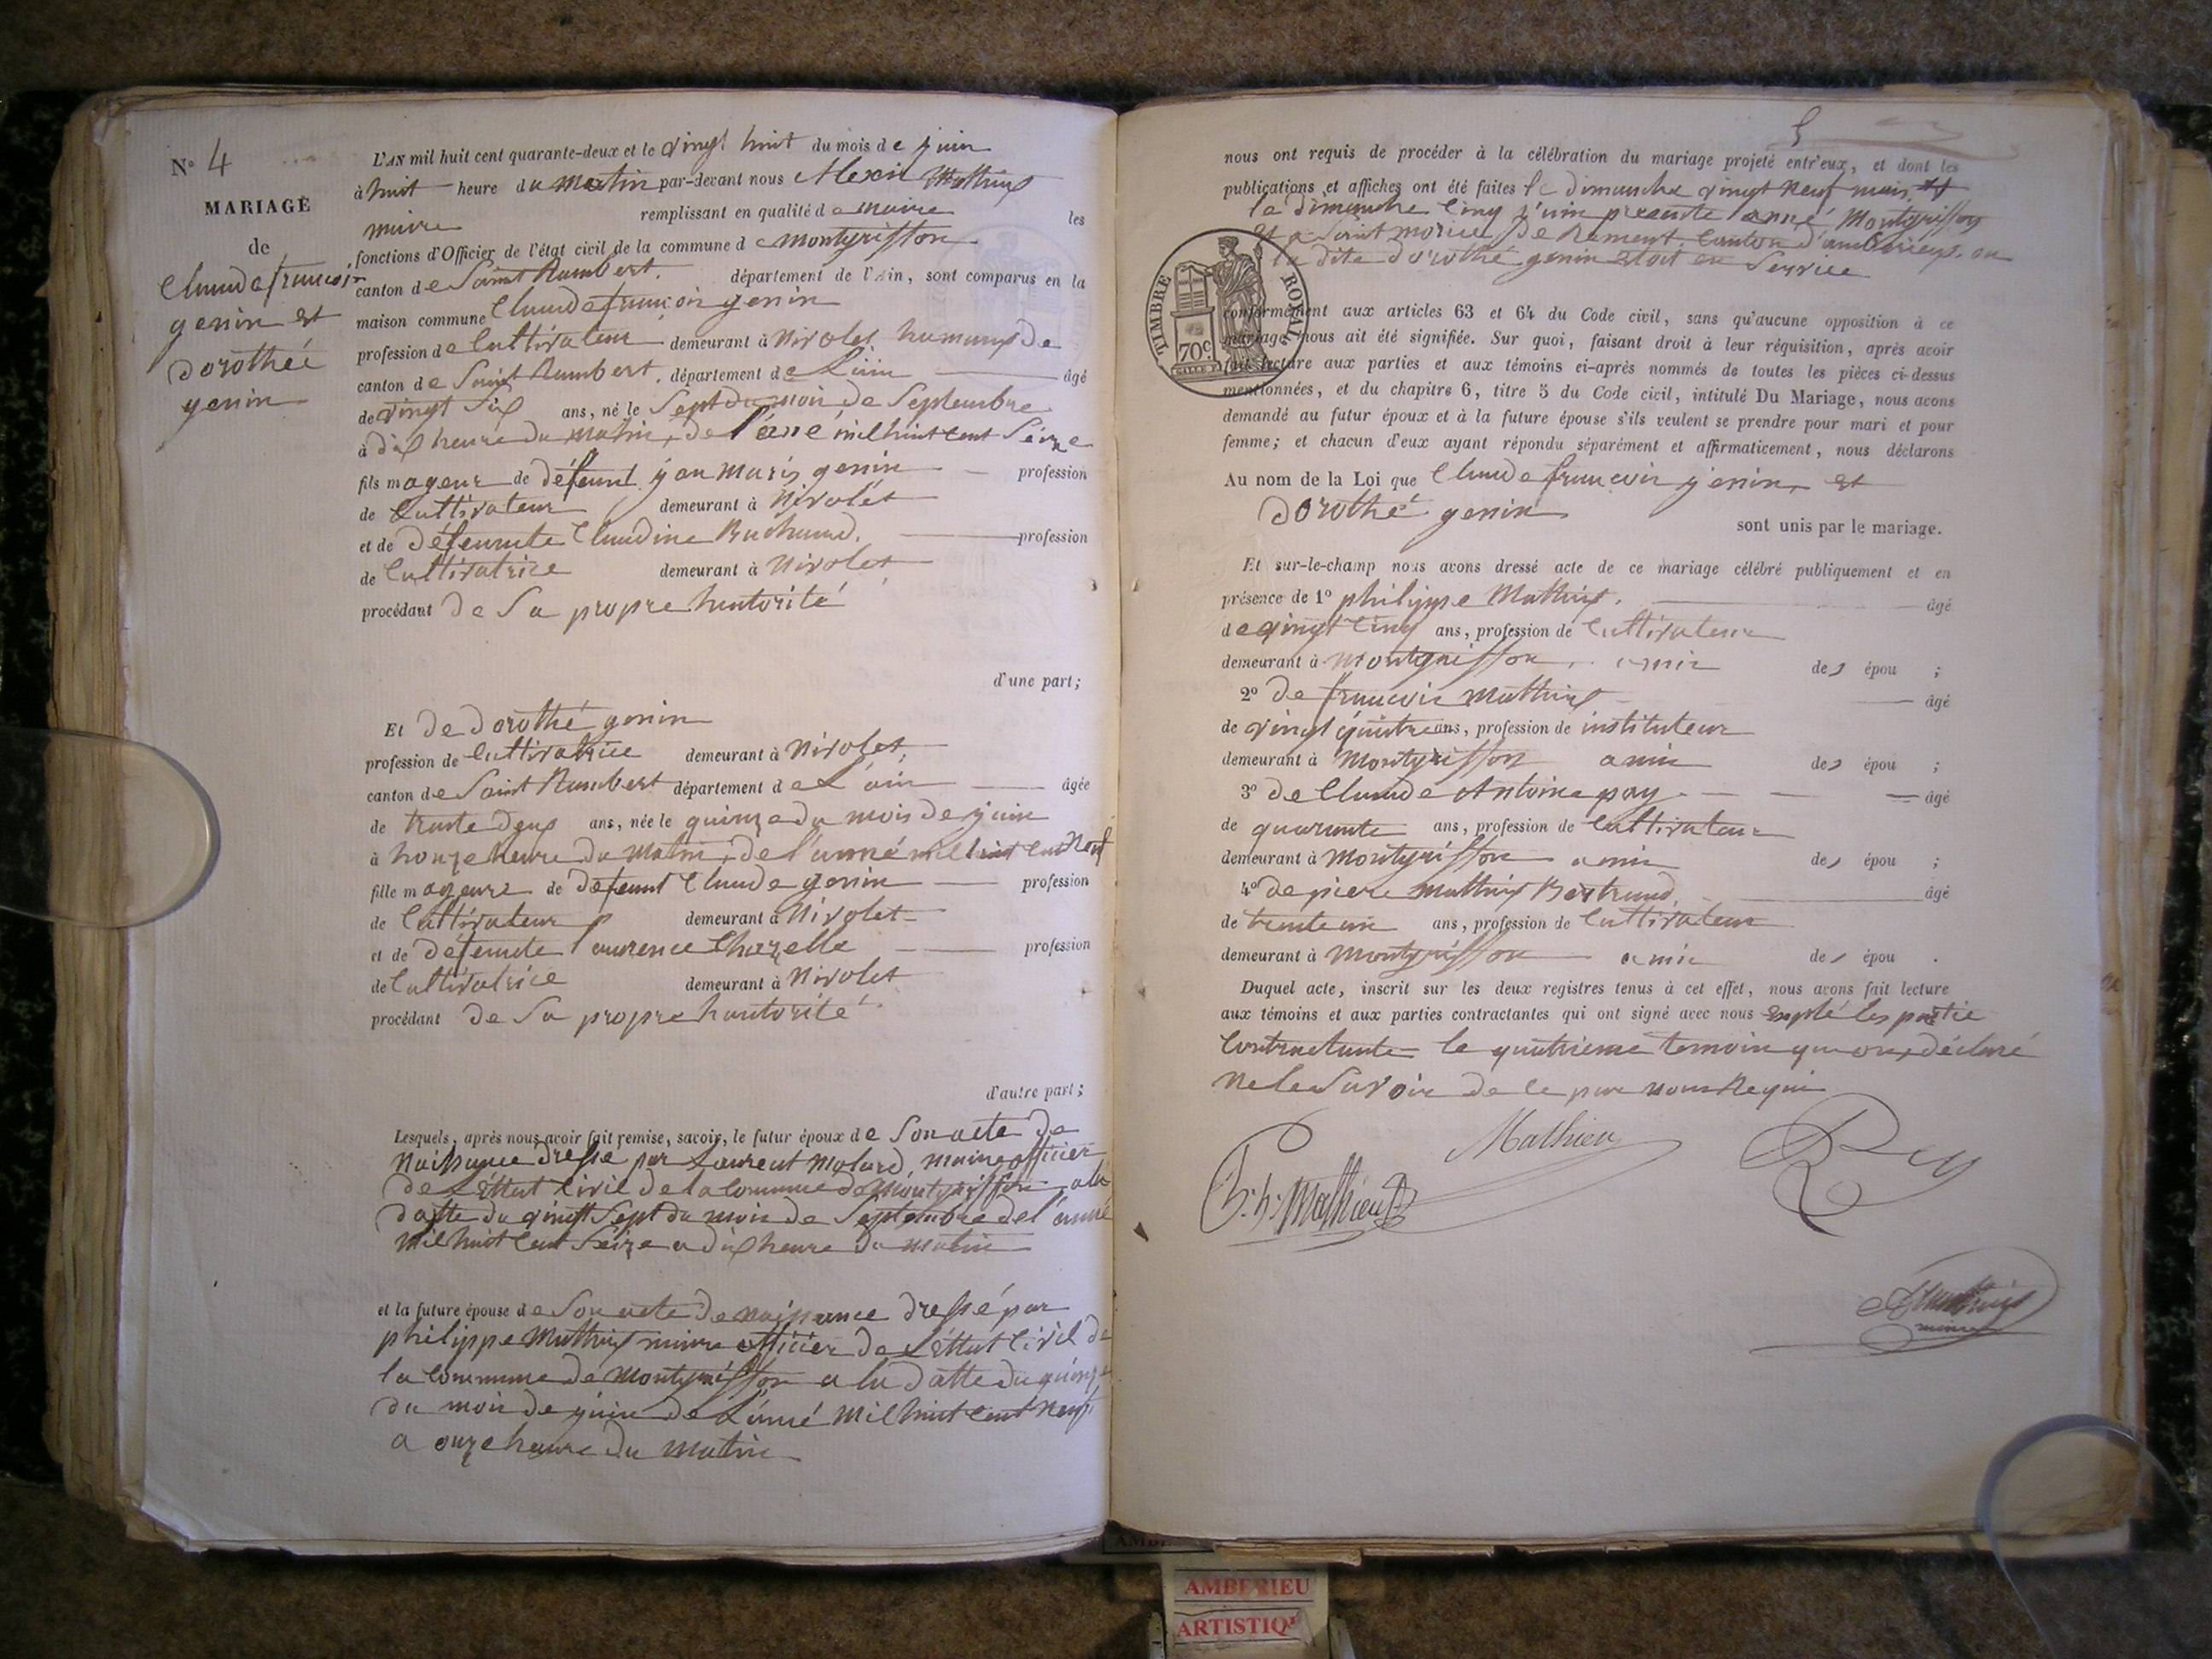 N° 4
MARIAGE
de
Claude françois
genin et
dorothée
genin
L'AN mil huit cent quarante-deux et le vingt huit du mois de juin
à huit heure du matin par-devant nous Alexis Mathieux
maire remplissant en qualité de maire les
fonctions d'Officier de l'état civil de la commune de montgriffon
canton de Saint Rambert. département de l'Ain, sont comparus en la
maison commune Claude françois genin
profession de Cultivateur demeurant à Nivolet hameaux de
canton de Saint Rambert. département de L'ain âgé
de vingt six ans, né le Sept du mois de Septembre
à dix heure du matin, de l'ané mil huit cent Seize
fils mageur de défunt jean marie genin profession
de Cultivateur demeurant à Nivolet
et de défeunte Claudine Buchard. profession
de Cultivatrice demeurant à Nivolet
procédant de Sa propre hautorité
d'une part;
Et de dorothé genin
profession de Cultivatrice demeurant à Nivolet,
canton de Saint Rambert département de L'ain âgée
de trente deux ans, née le quinze du mois de juin
à honze heure du Matin, de l'anné mil huit cent Neuf
fille mageure de défeunt Claude genin profession
de Cultivateur demeurant à Nivolet
et de défeunte laurence Chazelle profession
de Cultivatrice demeurant à Nivolet
procédant de Sa propre hautorité
d'autre part;
Lesquels, après nous avoir fait remise, savoir, le futur époux de Son acte de
Naissance dressé par Laurent Molard, maire officier
de L'éttat Civil de la Commune de Montgriffon a la
datte du vingt Sept du mois de Septembre de l'anné
Mil huit Cent Seize a dix heure du matin
et la future épouse de Son acte de naissance dressé par
philippe Mathieux maire officier de L'éttat Civil de
la Commune de Montgriffon a la datte du quinze
du mois de juin de L'anné Mil huit Cent Neuf
a onze heure du Matin
5
nous ont requis de procéder à la célébration du mariage projeté entr'eux, et dont les
publications et affiches ont été faites le dimanche vingt neuf mais et
le dimanche Cinq juin presente anné Montgriffon
et a Saint morice de Rement. Canton d'ambérieux. ou
la dite dorothé genin etoit en Service
TIMBRE ROYAL
70c
conformément aux articles 63 et 64 du Code civil, sans qu'aucune opposition à ce
mariage nous ait été signifiée. Sur quoi, faisant droit à leur réquisition, après avoir
fait lecture aux parties et aux témoins ci-après nommés de toutes les pièces ci-dessus
mentionnées, et du chapitre 6, titre 5 du Code civil, intitulé Du Mariage, nous avons
demandé au futur époux et à la future épouse s'ils veulent se prendre pour mari et pour
femme; et chacun d'eux ayant répondu séparément et affirmativement, nous déclarons
Au nom de la Loi que Claude françois genin, et
dorothé genin
sont unis par le mariage.
Et sur-le-champ nous avons dressé acte de ce mariage célébré publiquement et en
présence de 1° philippe Mathieux. âgé
de vingt Cinq ans, profession de Cultivateur
demeurant à Montgriffon amis des épou ;
2° de francois Mathieux âgé
de vingt quatre ans, profession de instituteur
demeurant à Montgriffon amis des épou ;
3° de Claude Antoine pay âgé
de quarante ans, profession de Cultivateur
demeurant à Montgriffon amis des épou ;
4° de pierre Mathieux Bertrand, âgé
de trente un ans, profession de Cultivateur
demeurant à Montgriffon amis des épou .
Duquel acte, inscrit sur les deux registres tenus à cet effet, nous avons fait lecture
aux témoins et aux parties contractantes qui ont signé avec nous Expté les partie
Contractante le quatrieme temoin qui ont déclaré
Ne le Savoir de Ce par nous Requi
Mathieu
Ph. Mathieux
Rey
A Mathieux
maire
AMBERIEU
ARTISTIQ